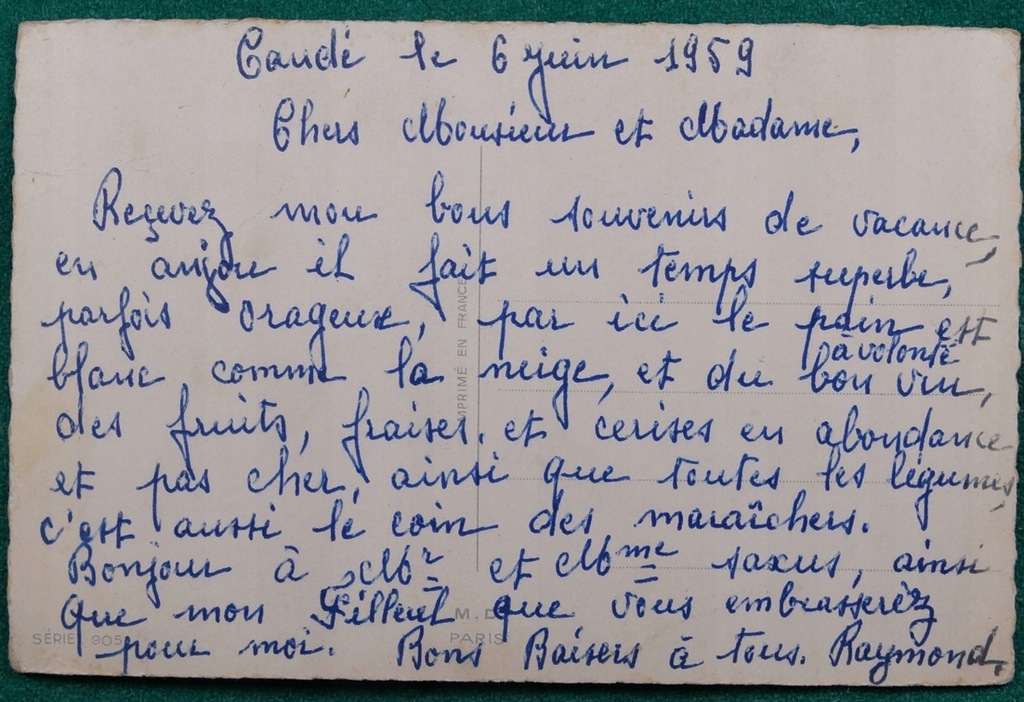 Candé le 6 Juin 1959
Chers Monsieur et Madame,
Reçevez mon bons souvenirs de vacance,
en anjou il fait un temps superbe,
parfois orageux, par ici le pain est
blanc comme la neige, et du bon vin,
à volonté
des fruits, fraises, et cerises en abondance
et pas cher, ainsi que toutes les légumes,
c'est aussi le coin des maraîchers.
Bonjour à Mr et Mme saxus, ainsi
que mon Filleul que vous embrasserez
pour moi. Bons Baisers à tous. Raymond.
IMPRIMÉ EN FRANCE
M.D.
PARIS
SÉRIE 905